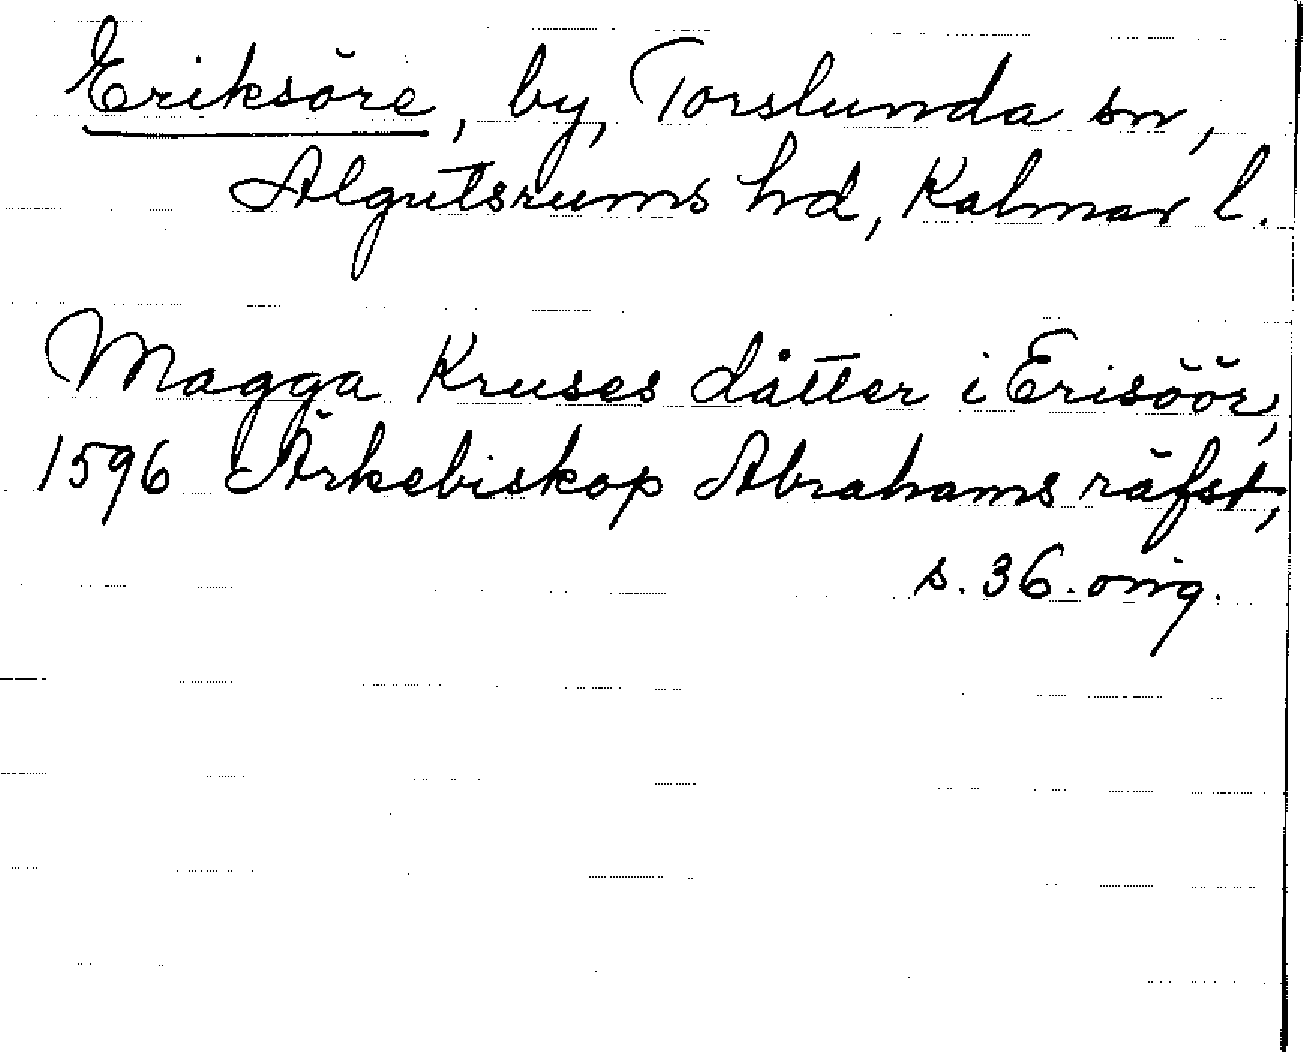 Eriksöre, by, Torslunda sn,
Algutsrums hd, Kalmar l.
Magga Kruses dåtter i Erisöör,
1596 Ärkebiskop Abrahams räfst,
s. 36. orig.